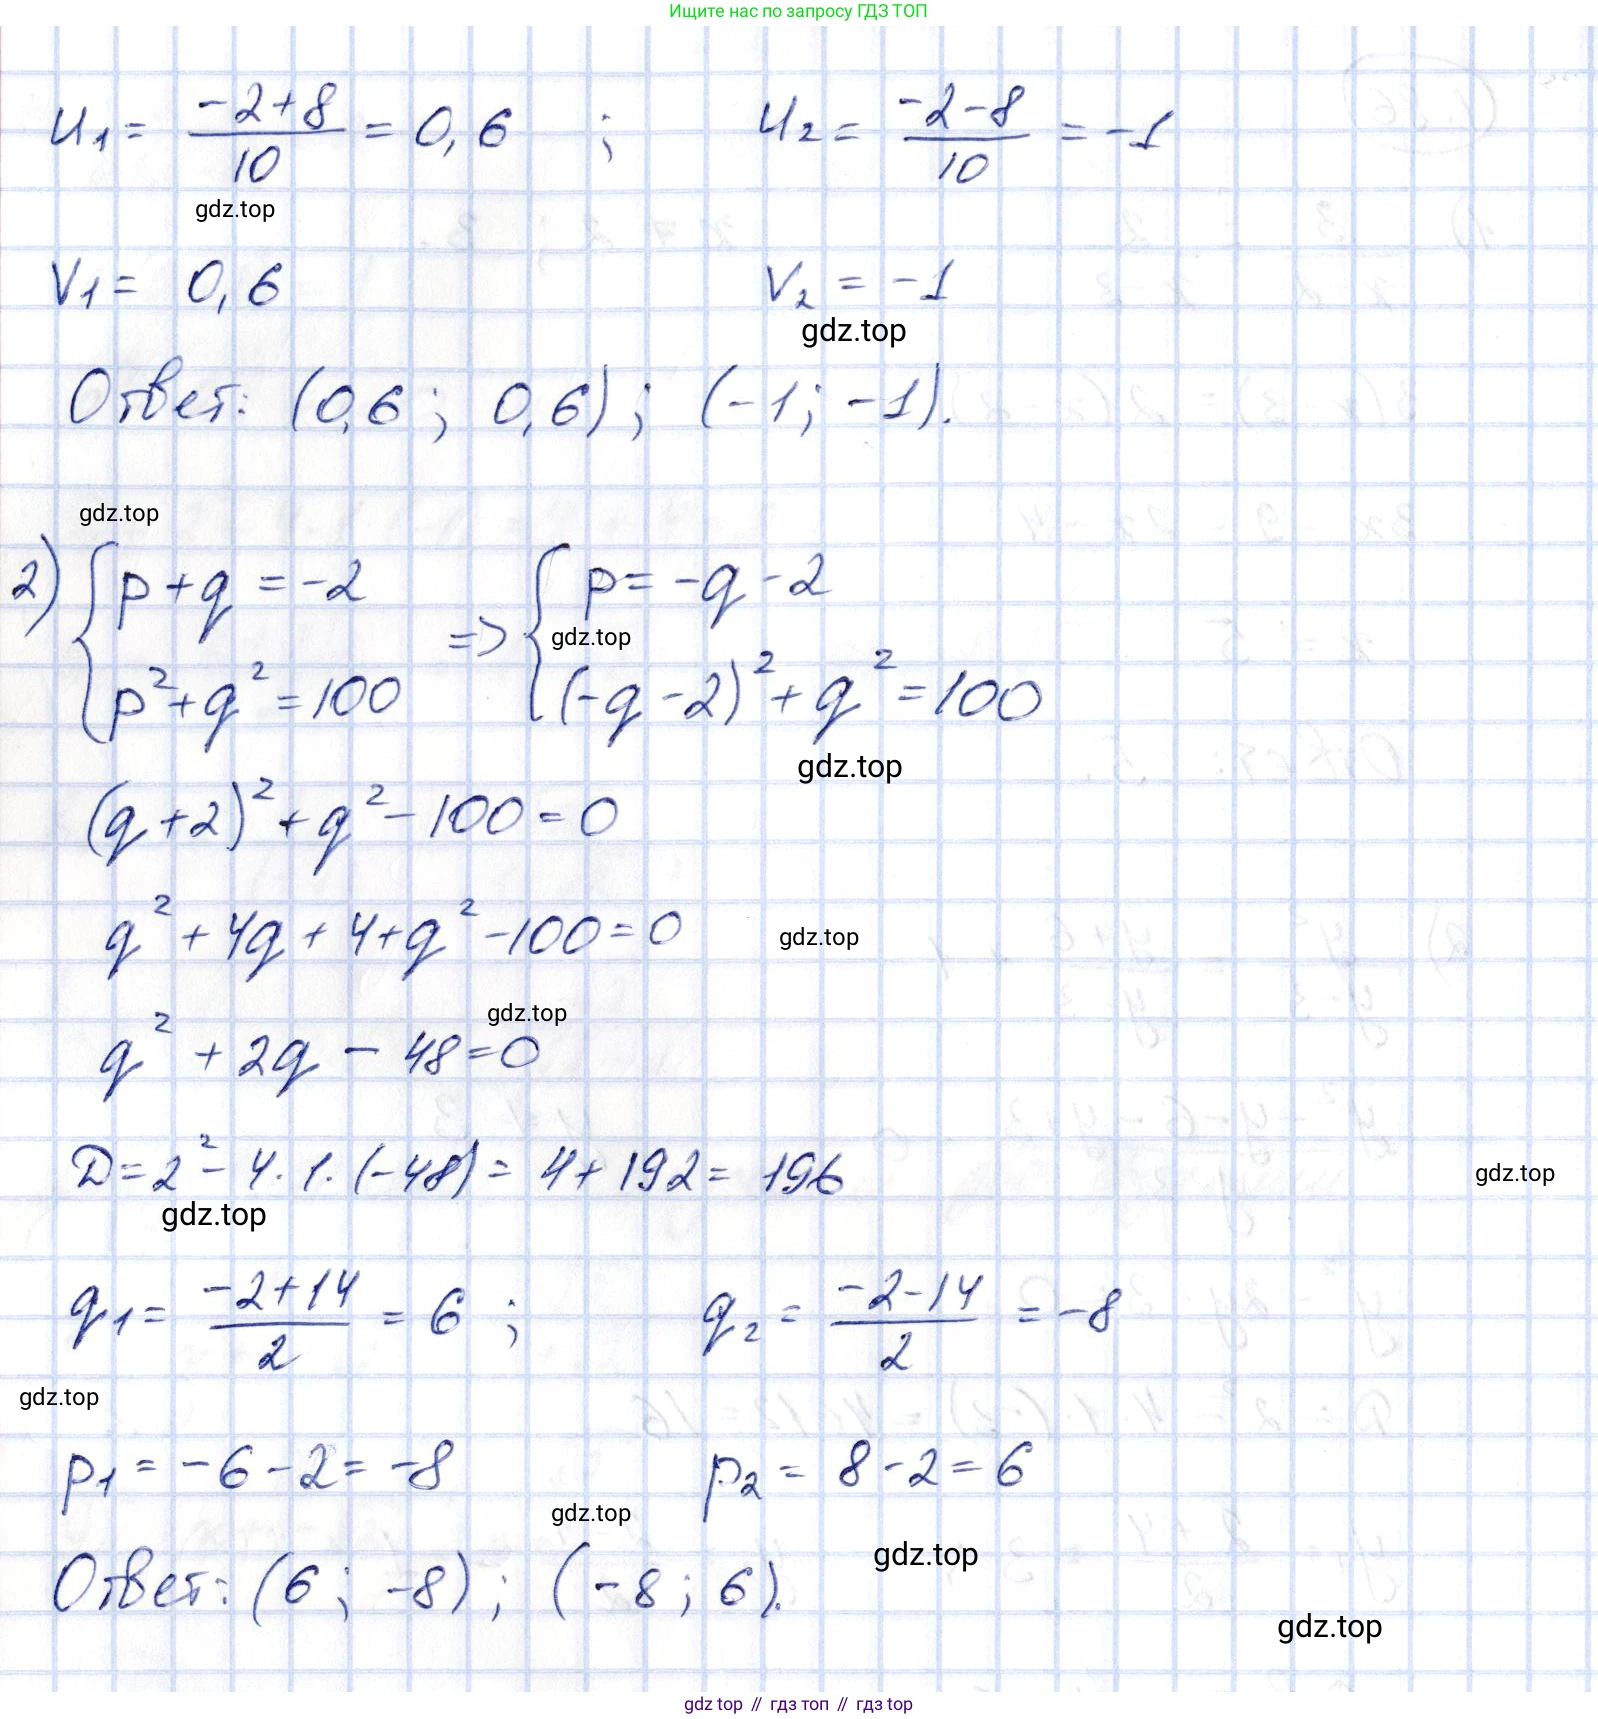 Ищите нас по запросу ГДЗ ТОП
u₁ = (-2+8)/10 = 0,6 ; u₂ = (-2-8)/10 = -1
gdz.top
v₁ = 0,6 v₂ = -1
gdz.top
Ответ: (0,6 ; 0,6) ; (-1 ; -1).
gdz.top
2) { p+q = -2 => { p = -q-2
gdz.top
p²+q² = 100 (-q-2)²+q² = 100
gdz.top
(q+2)²+q²-100 = 0
q²+4q+4+q²-100 = 0
gdz.top
gdz.top
q² + 2q - 48 = 0
D = 2² - 4·1·(-48) = 4+192 = 196
gdz.top
gdz.top
q₁ = (-2+14)/2 = 6 ; q₂ = (-2-14)/2 = -8
gdz.top
p₁ = -6-2 = -8 p₂ = 8-2 = 6
gdz.top
gdz.top
Ответ: (6 ; -8) ; (-8 ; 6).
gdz.top
gdz top // гдз топ // гдз top